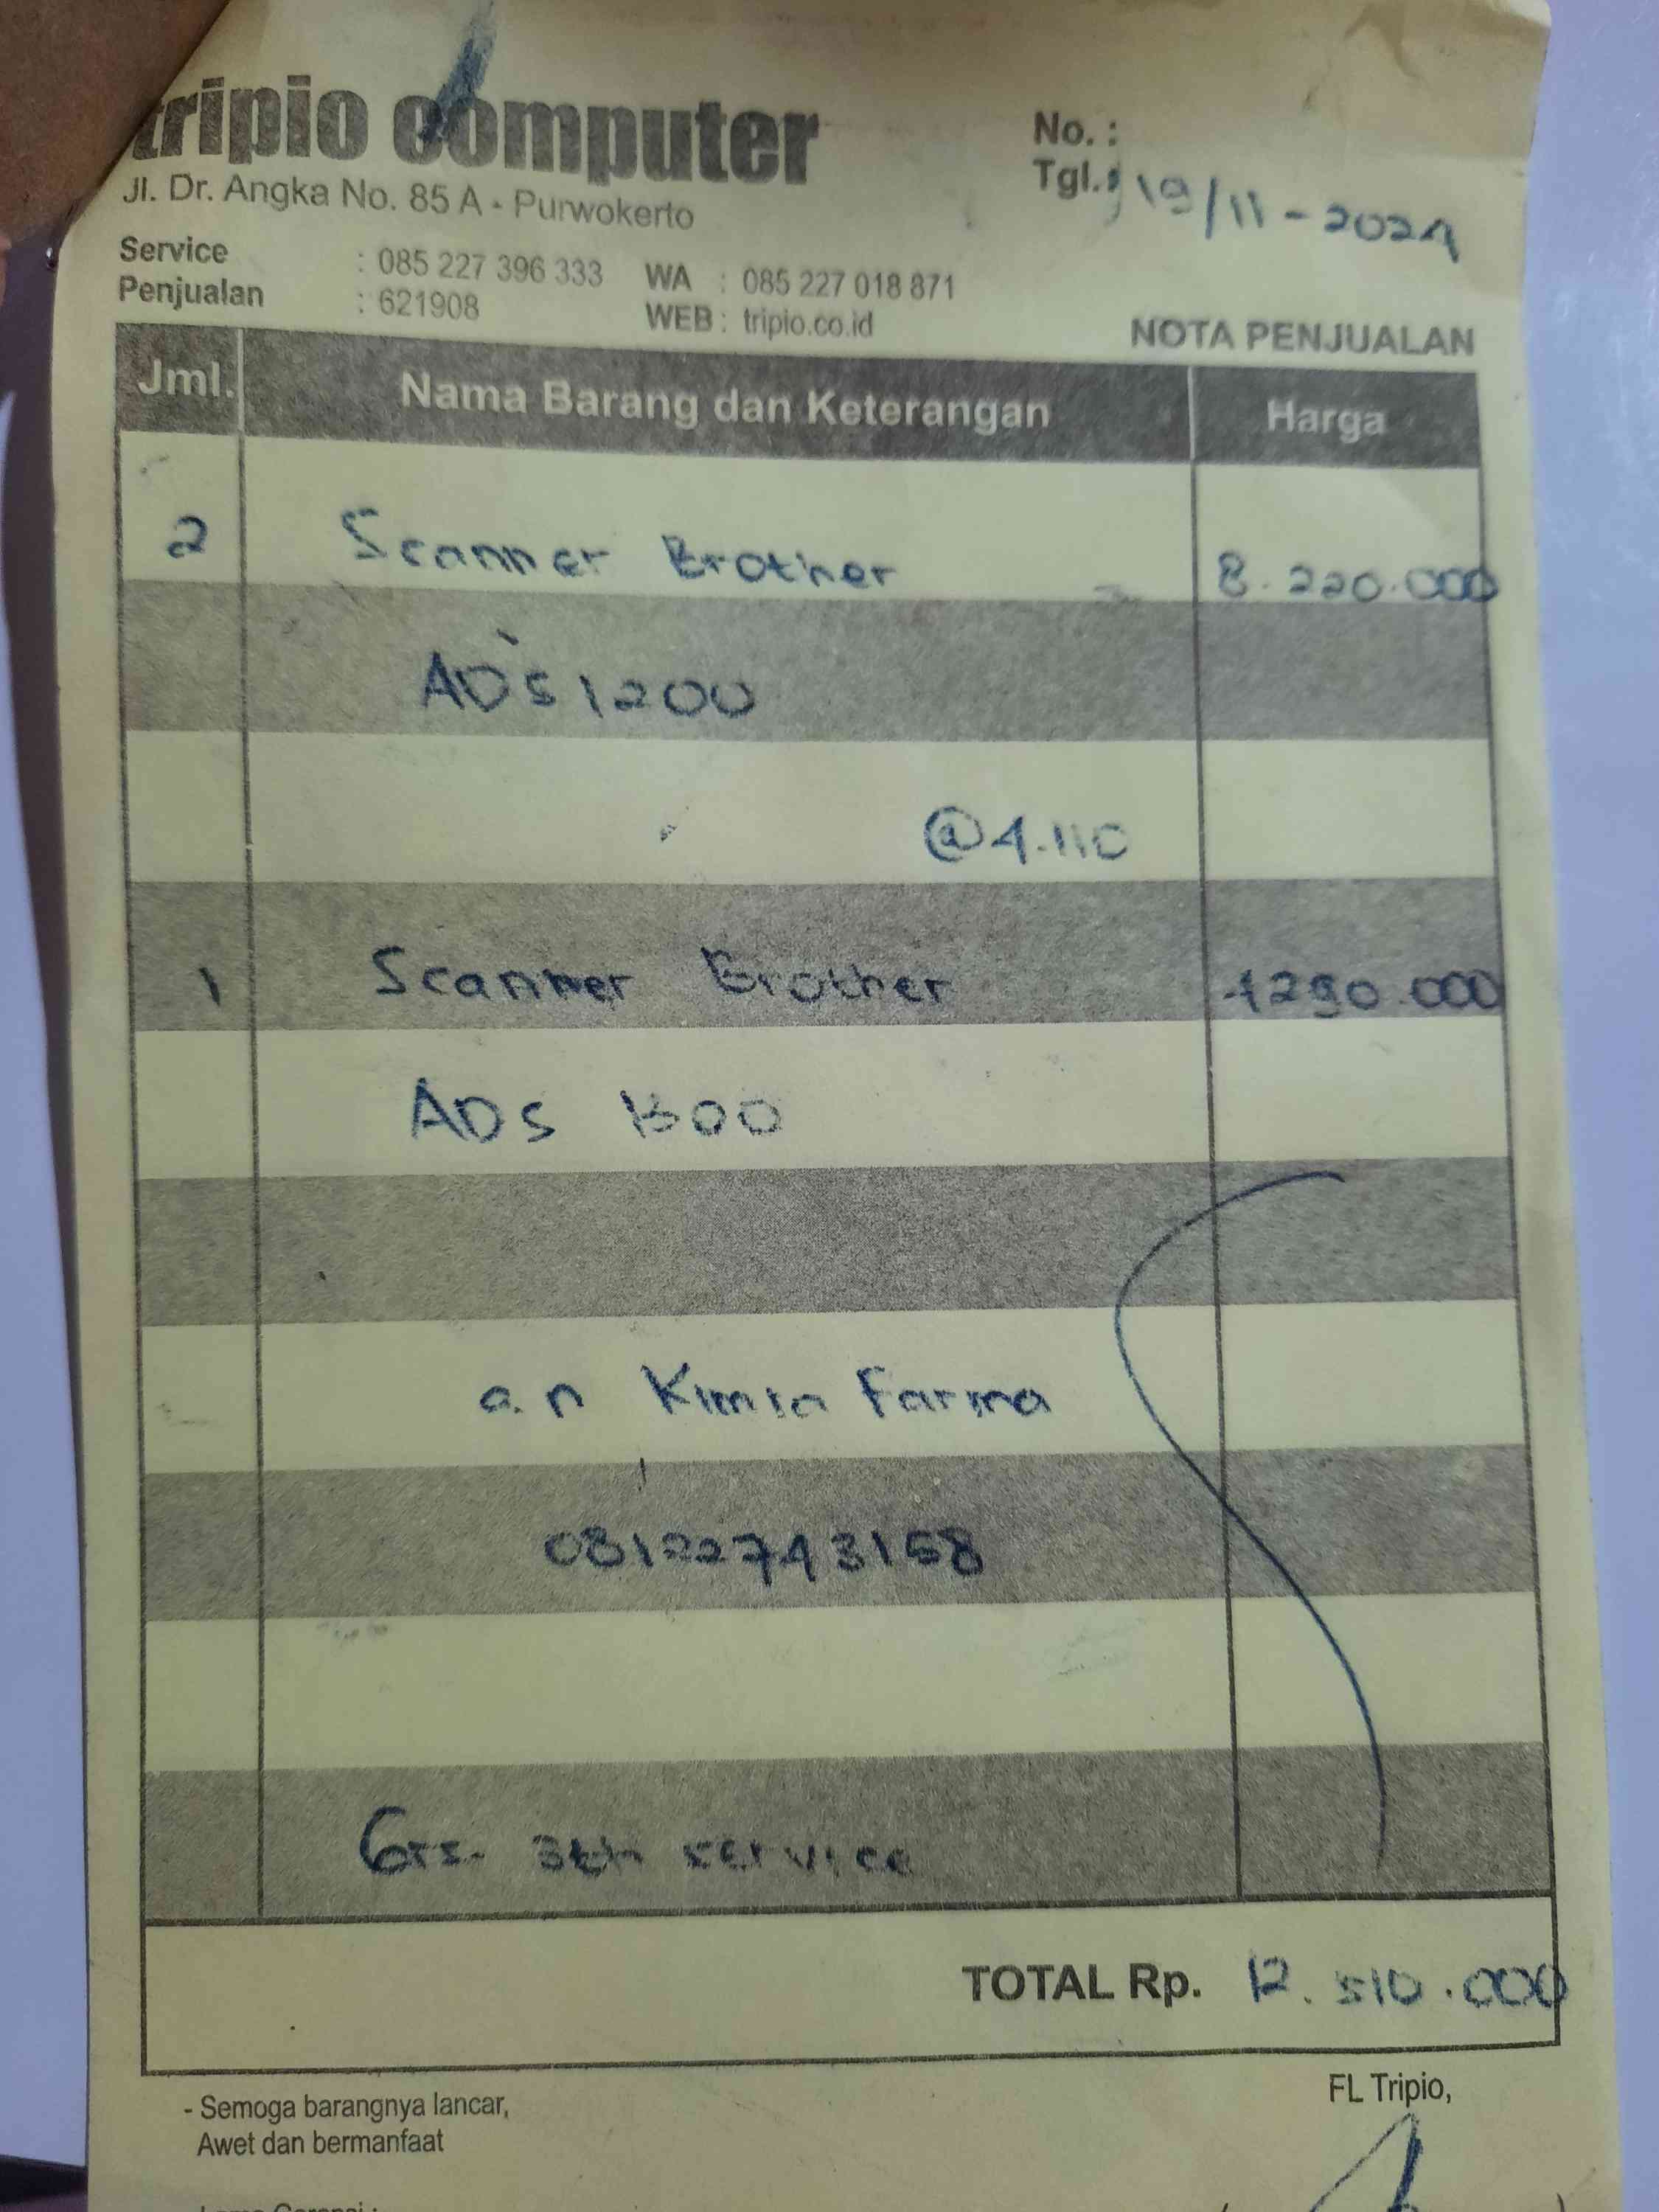 tripio computer
Jl. Dr. Angka No. 85 A - Purwokerto
No. :
Tgl. : 19/11-2024
Service : 085 227 396 333 WA : 085 227 018 871
Penjualan : 621908 WEB : tripio.co.id
NOTA PENJUALAN
Jml. Nama Barang dan Keterangan Harga
2 Scanner Brother 8.220.000
ADS 1200
@4.110
1 Scanner Brother 4290.000
ADS 1300
a.n Kimia Farma
08122743158
Grs. 3th service
TOTAL Rp. 12.510.000
- Semoga barangnya lancar,
Awet dan bermanfaat
FL Tripio,